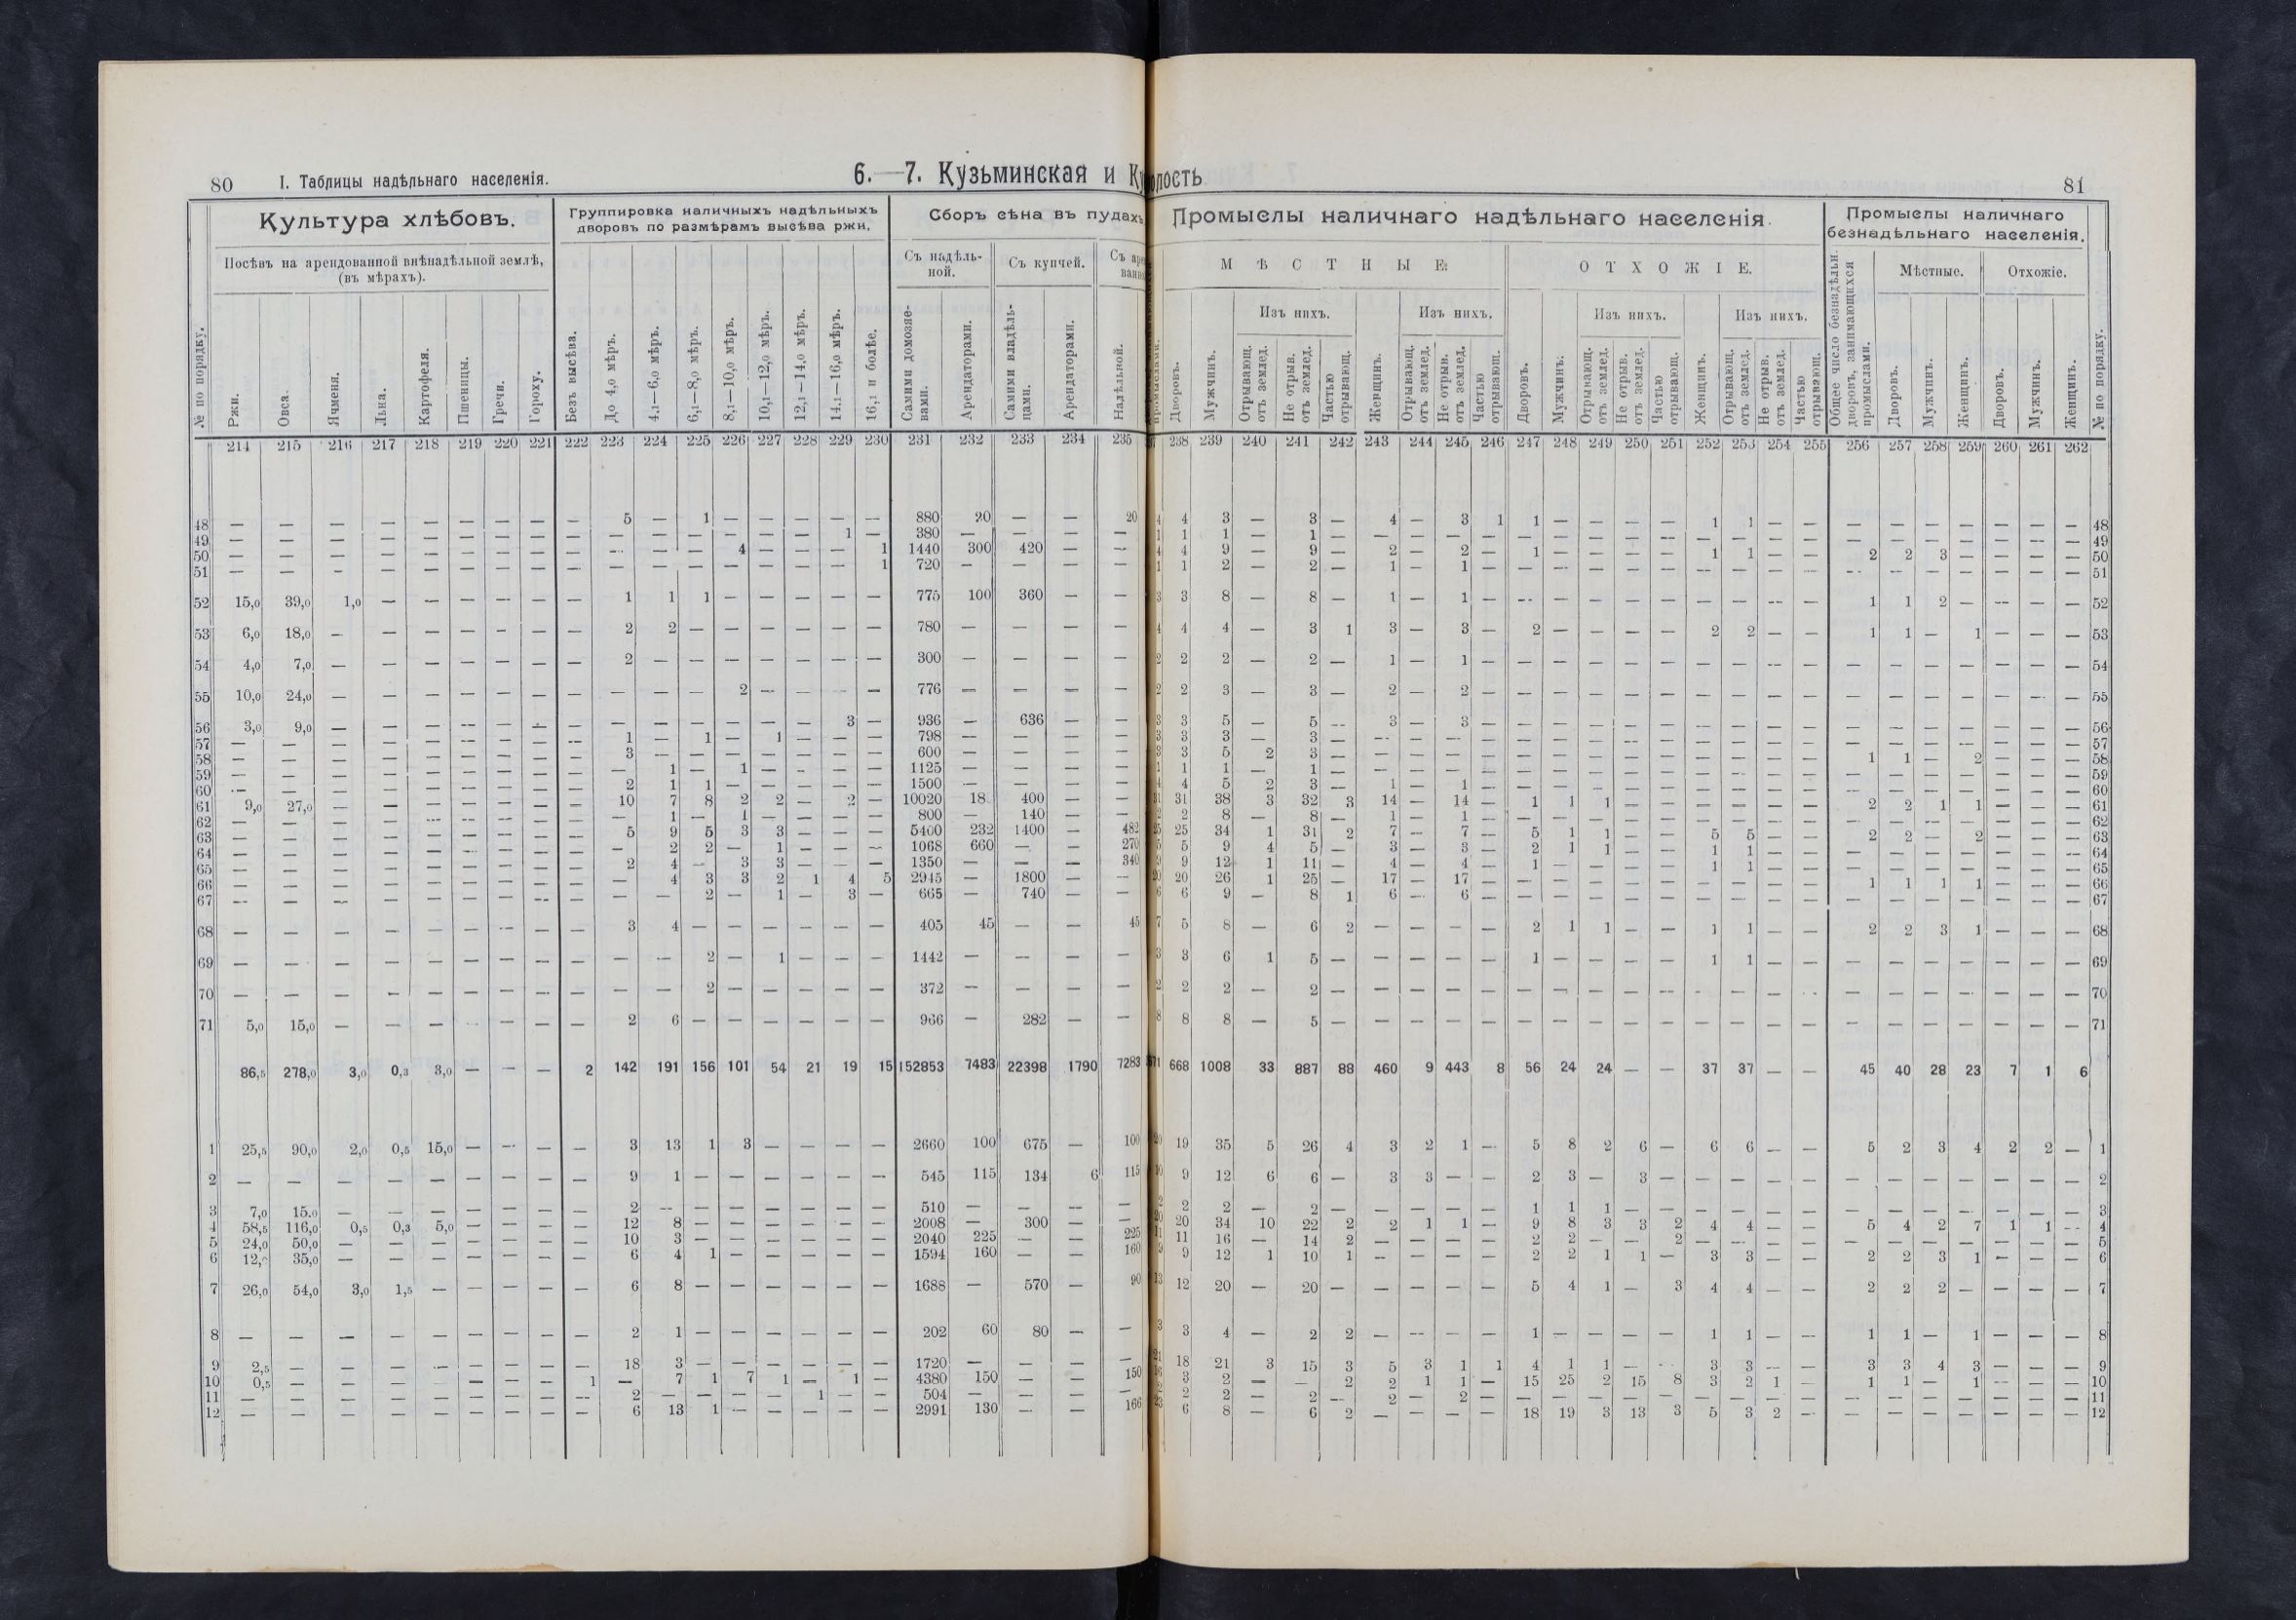 80 I. Таблицы надѣльнаго населенія. 6.—7. Кузьминская и
олость 81
Культура хлѣбовъ. Группировка наличныхъ надѣльныхъ дворовъ по размѣрамъ высѣва ржи. Сборъ сѣна въ пудахъ
Промыслы наличнаго надѣльнаго населенія. Промыслы наличнаго безнадѣльнаго населенія.
Посѣвъ на арендованной внѣнадѣльной землѣ, (въ мѣрахъ). Съ надѣльной. Съ купчей.
МѢСТНЫЕ. ОТХОЖІЕ. Мѣстные. Отхожіе.
Изъ нихъ. Изъ нихъ. Изъ нихъ. Изъ нихъ.
№ по порядку. Ржи. Овса. Ячменя. Льна. Картофеля. Пшеницы. Гречи. Гороху. Безъ высѣва. До 4,0 мѣръ. 4,1—6,0 мѣръ. 6,1—8,0 мѣръ. 8,1—10,0 мѣръ. 10,1—12,0 мѣръ. 12,1—14,0 мѣръ. 14,1—16,0 мѣръ. 16,1 и болѣе. Самими домохозяевами. Арендаторами. Самими владѣльцами. Арендаторами. Надѣльной.
Дворовъ. Мужчинъ. Отрывающ. отъ землед. Не отрыв. отъ землед. Частью отрывающ. Женщинъ. Отрывающ. отъ землед. Не отрыв. отъ землед. Частью отрывающ. Дворовъ. Мужчинъ. Отрывающ. отъ землед. Не отрыв. отъ землед. Частью отрывающ. Женщинъ. Отрывающ. отъ землед. Не отрыв. отъ землед. Частью отрывающ. Общее число безнадѣльн. дворовъ, занимающихся промыслами. Дворовъ. Мужчинъ. Женщинъ. Дворовъ. Мужчинъ. Женщинъ. № по порядку.
214 215 216 217 218 219 220 221 222 223 224 225 226 227 228 229 230 231 232 233 234 235
238 239 240 241 242 243 244 245 246 247 248 249 250 251 252 253 254 255 256 257 258 259 260 261 262
48 — — — — — — — — — 5 — 1 — — — — — 880 20 — — 20
4 4 3 — 3 — 4 — 3 1 1 — — — — 1 1 — — — — — — — — — 48
49 — — — — — — — — — — — — — — — 1 — 380 — — — —
1 1 1 — 1 — — — — — — — — — — — — — — — — — — — — — 49
50 — — — — — — — — — — — — 4 — — — 1 1440 300 420 — —
4 4 9 — 9 — 2 — 2 — 1 — — — — 1 1 — — 2 2 3 — — — — 50
51 — — — — — — — — — — — — — — — — 1 720 — — — —
1 1 2 — 2 — 1 — 1 — — — — — — — — — — — — — — — — — 51
52 15,0 39,0 1,0 — — — — — — 1 1 1 — — — — — 775 100 360 — —
3 3 8 — 8 — 1 — 1 — — — — — — — — — — 1 1 2 — — — — 52
53 6,0 18,0 — — — — — — — 2 2 — — — — — — 780 — — — —
4 4 4 — 3 1 3 — 3 — 2 — — — — 2 2 — — 1 1 — 1 — — — 53
54 4,0 7,0 — — — — — — — 2 — — — — — — — 300 — — — —
2 2 2 — 2 — 1 — 1 — — — — — — — — — — — — — — — — — 54
55 10,0 24,0 — — — — — — — — — — 2 — — — — 776 — — — —
2 2 3 — 3 — 2 — 2 — — — — — — — — — — — — — — — — — 55
56 3,0 9,0 — — — — — — — — — — — — — 3 — 936 — 636 — —
3 3 5 — 5 — 3 — 3 — — — — — — — — — — — — — — — — — 56
57 — — — — — — — — — 1 — 1 — 1 — — — 798 — — — —
3 3 3 — 3 — — — — — — — — — — — — — — — — — — — — — 57
58 — — — — — — — — — 3 — — — — — — — 600 — — — —
3 3 5 2 3 — — — — — — — — — — — — — — 1 1 — 2 — — — 58
59 — — — — — — — — — — 1 — 1 — — — — 1125 — — — —
1 1 1 — 1 — — — — — — — — — — — — — — — — — — — — — 59
60 — — — — — — — — — 2 1 1 — — — — — 1500 — — — —
4 4 5 2 3 — 1 — 1 — — — — — — — — — — — — — — — — — 60
61 9,0 27,0 — — — — — — — 10 7 8 2 2 — 2 — 10020 18 400 — —
31 31 38 3 32 3 14 — 14 — 1 1 1 — — — — — — 2 2 1 1 — — — 61
62 — — — — — — — — — — 1 — 1 — — — — 800 — 140 — —
2 2 8 — 8 — 1 — 1 — — — — — — — — — — — — — — — — — 62
63 — — — — — — — — — 5 9 5 3 3 — — — 5400 232 1400 — 482
25 25 34 1 31 2 7 — 7 — 5 1 1 — — 5 5 — — 2 2 — 2 — — — 63
64 — — — — — — — — — — 2 2 — 1 — — — 1068 660 — — 270
5 5 9 4 5 — 3 — 3 — 2 1 1 — — 1 1 — — — — — — — — — 64
65 — — — — — — — — — 2 4 — 3 3 — — — 1350 — — — 340
9 9 12 1 11 — 4 — 4 — 1 — — — — 1 1 — — — — — — — — — 65
66 — — — — — — — — — — 4 3 3 2 1 4 5 2945 — 1800 — —
20 20 26 1 25 — 17 — 17 — — — — — — — — — — 1 1 1 1 — — — 66
67 — — — — — — — — — — — 2 — 1 — 3 — 665 — 740 — —
6 6 9 — 8 1 6 — 6 — — — — — — — — — — — — — — — — — 67
68 — — — — — — — — — 3 4 — — — — — — 405 45 — — 45
7 5 8 — 6 2 — — — — 2 1 1 — — 1 1 — — 2 2 3 1 — — — 68
69 — — — — — — — — — — — 2 — 1 — — — 1442 — — — —
3 3 6 1 5 — — — — — 1 — — — — 1 1 — — — — — — — — — 69
70 — — — — — — — — — — — 2 — — — — — 372 — — — —
2 2 2 — 2 — — — — — — — — — — — — — — — — — — — — — 70
71 5,0 15,0 — — — — — — — 2 6 — — — — — — 966 — 282 — —
8 8 8 — 5 — — — — — — — — — — — — — — — — — — — — — 71
86,5 278,0 3,0 0,3 3,0 — — — 2 142 191 156 101 54 21 19 15 152853 7483 22398 1790 7283
668 1008 33 887 88 460 9 443 8 56 24 24 — — 37 37 — — 45 40 28 23 7 1 6
1 25,5 90,0 2,0 0,5 15,0 — — — — 3 13 1 3 — — — — 2660 100 675 — 100
20 19 35 5 26 4 3 2 1 — 5 8 2 6 — 6 6 — — 5 2 3 4 2 2 — 1
2 — — — — — — — — — 9 1 — — — — — — 545 115 134 6 115
10 9 12 6 6 — 3 3 — — 2 3 — 3 — — — — — — — — — — — — 2
3 7,0 15,0 — — — — — — — 2 — — — — — — — 510 — — — —
2 2 2 — 2 — — — — — 1 1 1 — — — — — — — — — — — — — 3
4 58,5 116,0 0,5 0,3 5,0 — — — — 12 8 — — — — — — 2008 — 300 — —
20 20 34 10 22 2 2 1 1 — 9 8 3 3 2 4 4 — — 5 4 2 7 1 1 — 4
5 24,0 50,0 — — — — — — — 10 3 — — — — — — 2040 225 — — 225
11 11 16 — 14 2 — — — — 2 2 — — 2 — — — — — — — — — — — 5
6 12,0 35,0 — — — — — — — 6 4 1 — — — — — 1594 160 — — 160
9 9 12 1 10 1 — — — — 2 2 1 1 — 3 3 — — 2 2 3 1 — — — 6
7 26,0 54,0 3,0 1,5 — — — — — 6 8 — — — — — — 1688 — 570 — 90
13 12 20 — 20 — — — — — 5 4 1 — 3 4 4 — — 2 2 2 — — — — 7
8 — — — — — — — — — 2 1 — — — — — — 202 60 80 — —
3 3 4 — 2 2 — — — — 1 — — — — 1 1 — — 1 1 — 1 — — — 8
9 2,5 — — — — — — — — 18 3 — — — — — — 1720 — — — —
21 18 21 3 15 3 5 3 1 1 4 1 1 — — 3 3 — — 3 3 4 3 — — — 9
10 0,5 — — — — — — — 1 — 7 1 7 1 — 1 — 4380 150 — — 150
3 2 — — 2 2 1 1 — 15 25 2 15 8 3 2 1 — 1 1 — 1 — — — 10
11 — — — — — — — — — 2 — — — — 1 — — 504 — — — —
2 2 — 2 — 2 — 2 — — — — — — — — — — — — — — — — — 11
12 — — — — — — — — — 6 13 1 — — — — — 2991 130 — — 166
6 8 — 6 2 — — — — 18 19 3 13 3 5 3 2 — — — — — — — — 12